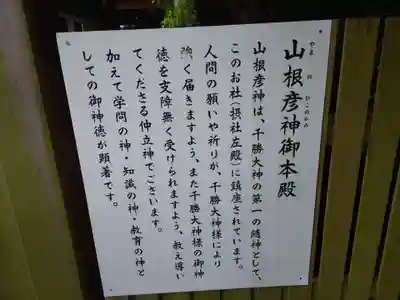 山根彦神御本殿
やまねひこのかみ
山根彦神は、千勝大神の第一の随神として、
このお社（摂社左殿）に鎮座されています。
人間の願いや祈りが、千勝大神様により
強く届きますよう、また千勝大神様の御神
徳を支障無く受けられますよう、教え導い
てくださる仲立神でございます。
加えて学問の神・知識の神・教育の神と
しての御神徳が顕著です。